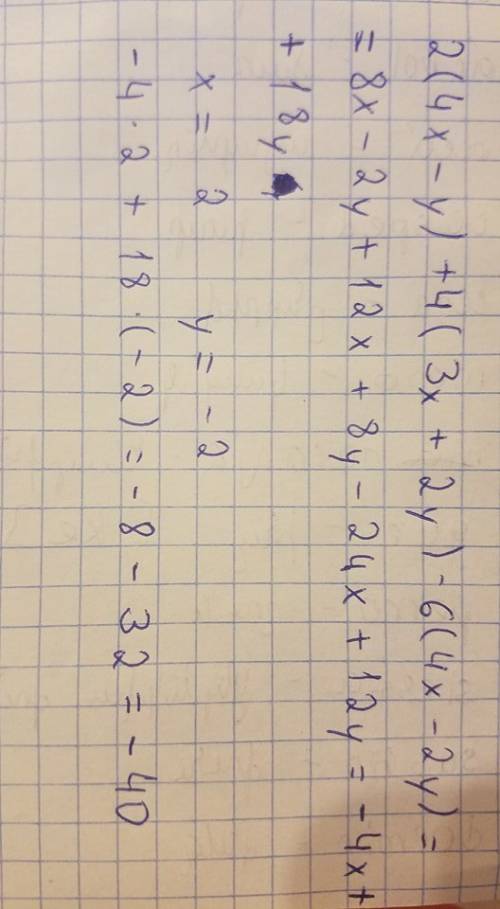 2(4x-y)+4(3x+2y)-6(4x-2y)=
=8x-2y+12x+8y-24x+12y=-4x+
+18y
x=2 y=-2
-4·2+18·(-2)=-8-32=-40